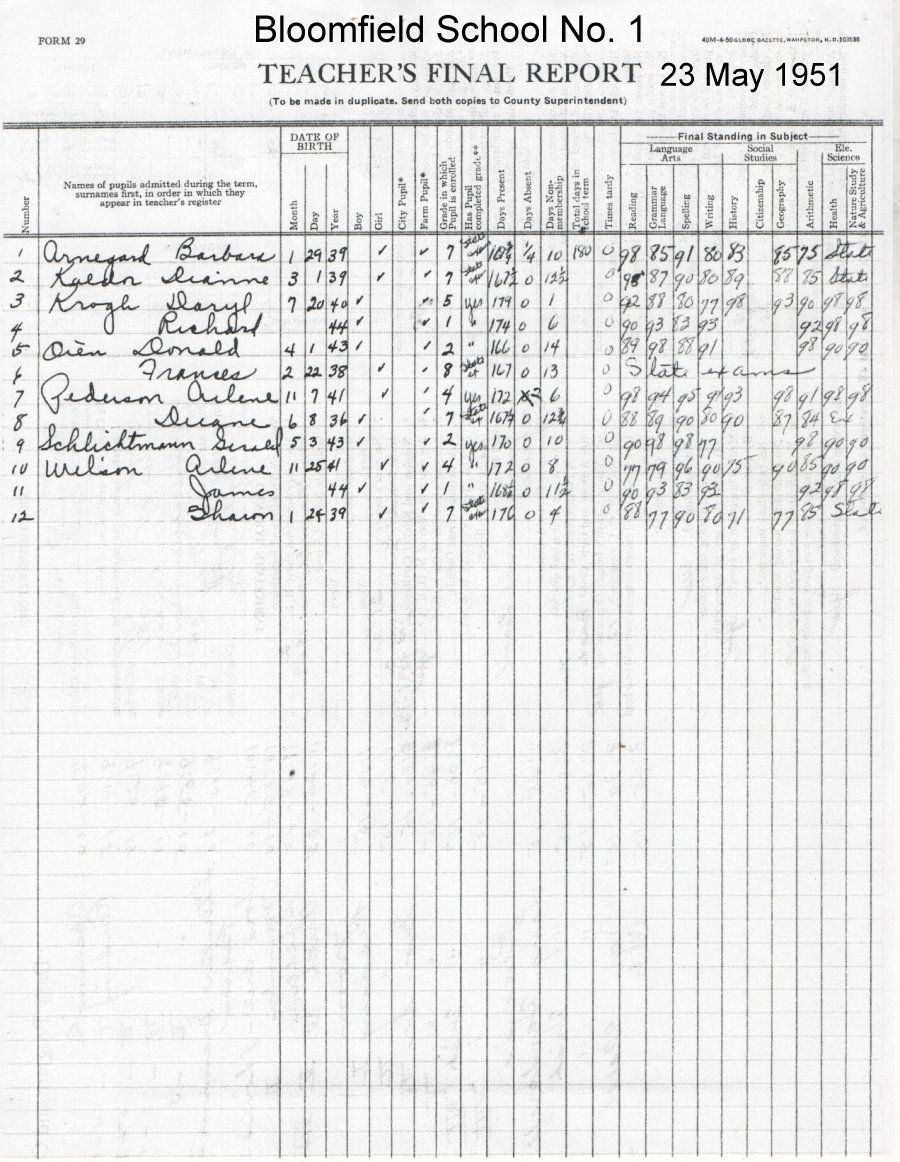 Bloomfield School No. 1
FORM 29
40M-4-50 GLOBE GAZETTE, WAHPETON, N. D. 103536
TEACHER'S FINAL REPORT 23 May 1951
(To be made in duplicate. Send both copies to County Superintendent)
Number
Names of pupils admitted during the term, surnames first, in order in which they appear in teacher's register
DATE OF BIRTH
Month Day Year
Boy Girl City Pupil* Farm Pupil*
Grade in which Pupil is enrolled
Has Pupil completed grade**
Days Present
Days Absent
Days Non-membership
Total days in school term
Times tardy
Final Standing in Subject
Language Arts Social Studies Ele. Science
Reading
Grammar Language
Spelling Writing History Citizenship Geography Arithmetic Health
Nature Study & Agriculture
1 Arnegard Barbara 1 29 39 ✓ ✓ 7 State 1/4 10 180 0 98 85 91 80 83 85 75 State
2 Dianne 3 1 39 ✓ ✓ 7 State 167½ 0 12½ 0 87 90 80 89 88 85 State
3 Krogh Daryl 7 20 40 ✓ ✓ 5 yes 179 0 1 0 92 88 80 77 98 93 90 98 98
4 Richard 44 ✓ ✓ 1 " 174 0 6 0 90 93 83 93 92 98 98
5 Oien Donald 4 1 43 ✓ ✓ 2 " 166 0 14 0 89 98 88 91 98 90 90
6 Frances 2 22 38 ✓ ✓ 8 State 167 0 13 0 State exams
7 Pederson Arlene 11 7 41 ✓ ✓ 4 yes 172 2 6 0 98 94 95 91 93 98 91 98 98
8 Duane 6 8 36 ✓ ✓ 7 State 0 0 88 89 90 80 90 87 84 Ex
9 Schlichtmann Gerald 5 3 43 ✓ ✓ 2 yes 170 0 10 0 90 98 98 77 98 90 90
10 Wilson Arlene 11 25 41 ✓ ✓ 4 " 172 0 8 0 77 79 96 90 75 90 85 90 90
11 James 44 ✓ ✓ 1 " 168½ 0 11½ 0 90 93 83 93 92 98 98
12 Sharon 1 24 39 ✓ ✓ 7 State 176 0 4 0 88 77 90 80 71 77 85 State